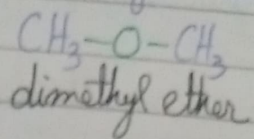 CH₃-O-CH₃
dimethyl ether